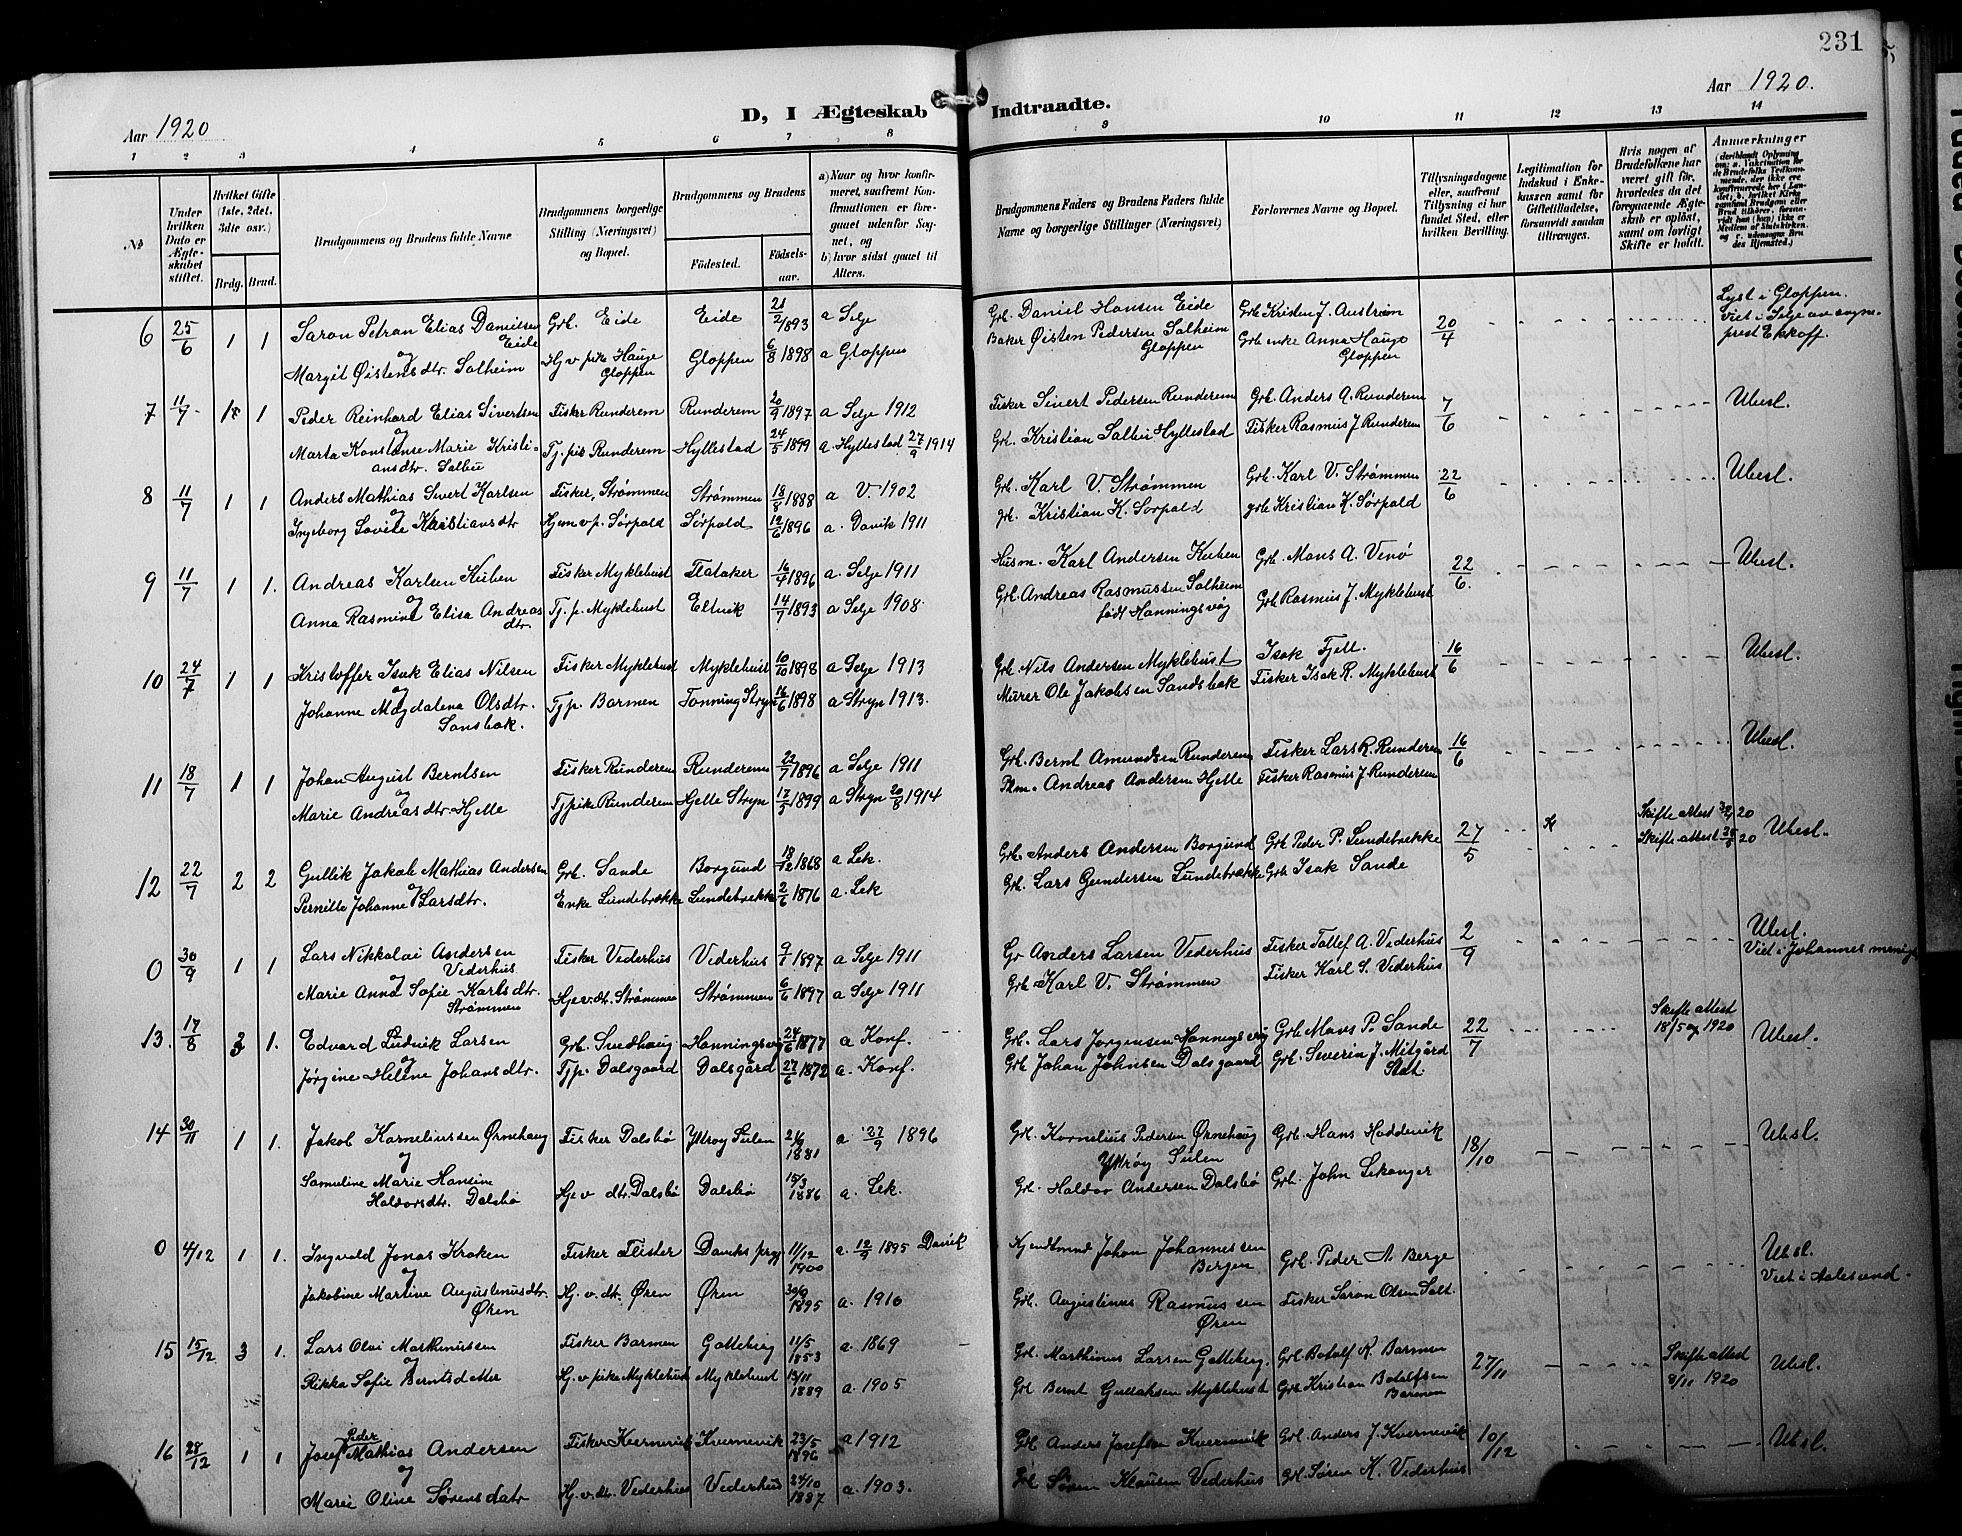 231
Aar 1920
D, I Ægteskab Indtraadte.
Aar 1920.
1 2 3 4 5 6 7 8 9 10 11 12 13 14
№
Under hvilken Dato er Ægteskabet stiftet.
Hvilket Gifte (1ste, 2det, 3die osv.)
Brdg. Brud.
Brudgommens og Brudens fulde Navne
Brudgommens borgerlige Stilling (Næringsvei) og Bopæl.
Brudgommens og Brudens
Fødested.
Fødselsaar.
a) Naar og hvor konfirmeret, saafremt Konfirmationen er foregaaet udenfor Sognet, og
b) hvor sidst gaaet til Alters.
Brudgommens Faders og Brudens Faders fulde Navne og borgerlige Stillinger (Næringsvei)
Forlovernes Navne og Bopæl.
Tillysningsdagene eller, saafremt Tillysning ei har fundet Sted, efter hvilken Bevilling.
Legitimation for Indskud i Enkekassen samt for Giftetilladelse, forsaavidt saadan tiltrænges.
Hvis nogen af Brudefolkene har været gift før, hvorledes da det foregaaende Ægteskab er opløst, samt om lovligt Skifte er holdt.
Anmærkninger
6 25/6 1 1 Saron Petran Elias Danielsen Eide Grb. Eide Eide 21/2 1893 a Selje Grb. Daniel Hansen Eide Grb Kristen J. Austreim 20/4 Lyst i Gloppen. Viet i Selje av sogneprest Ekkoff.
og
Margit Øistensdtr. Solheim Hj v pike Hauge Gloppen Gloppen 6/8 1898 a Gloppen Baker Øisten Pedersen Solheim Gloppen Grb enke Anna Hauge Gloppen
7 11/7 1 1 Peder Reinhard Elias Sivertsen Fisker Runderem Runderem 20/9 1897 a Selje 1912 Fisker Sivert Pedersen Runderem Grb. Anders A. Runderem 7/6 Ubesl.
og
Marta Konstanse Marie Kristiansdtr. Salbu Tj. pik Runderem Hyllestad 24/5 1899 a Hyllestad 27/9 1914 Grb. Kristian Salbu Hyllestad Fisker Rasmus J Runderem
8 11/7 1 1 Anders Mathias Sivert Karlsen Fisker, Strømmen Strømmen 18/8 1888 a V. 1902 Grb. Karl V. Strømmen Grb. Karl V. Strømmen 22/6 Ubesl.
og
Ingeborg Lovise Kristiansdtr Hjem v p. Sørpold Sørpold 12/6 1896 a. Davik 1911 grb. Kristian K. Sørpold grb Kristian K. Sørpold
9 11/7 1 1. Andreas Karlsen Kuben Fisker Myklebust Flataker 16/4 1896 a. Selje 1911 Husm. Karl Andersen Kuben Grb. Mons A. Venø 22/6. Ubesl.
og
Anna Rasmine Elisa Andreasdtr. Tj. p. Myklebust Eltvik 14/7 1893 a Selje 1908. Grb. Andreas Rasmussen Solheim født Hanningsvåg Grb Rasmus J. Myklebust
10 24/7 1 1 Kristoffer Isak Elias Nilsen Fisker Myklebust Myklebust 10/10 1898 a Selje 1913 Grb Nils Andersen Myklebust Isak Fjell. 16/6 Ubesl.
og
Johanne Magdalena Olsdtr. Sansbak. Tj p. Barmen Tonning Stryn 16/6 1898 a Stryn 1913. Murer Ole Jakobsen Sandsbak Fisker Isak R. Myklebust
11 18/7 1 1 Johan August Berntsen Fisker Runderem Runderem 22/7 1896 a Selje 1911 Grb. Bernt Amundsen Runderem Fisker Lars R. Runderem 16/6 Ubesl.
og
Marie Andreasdtr. Hjelle Tj pike Runderem Hjelle Stryn 17/3 1899 a Stryn 20/8 1914 Plm. Andreas Andersen Hjelle Fisker Rasmus J Runderem
12 22/7 2 2 Gullik Jakob Mathias Andersen Grb. Sande Borgund 18/12 1868 a Lek. Grb. Anders Andersen Borgund Grb Peder P. Lundebrekke 27/5 Skifte Attest 20 Ubesl.
og
Pernille Johanne Larsdtr. Enke Lundebrekke Lundebrekke 2/6 1876 a. Lek Grb. Lars Gundersen Lundebrekke Grb Isak Sande Skifte attest 20
0 30/9 1 1 Lars Nikkolai Andersen Vederhus Fisker Vederhus Vederhus 1897 a Selje 1911 Gr Anders Larsen Vederhus Fisker Tollef A. Vederhus 2/9 Ubesl. Viet i Johannes menigh
og
Marie Anna Sofie Karlsdtr. Strømmen Hje v. dt. Strømmen Strømmen 6/6 1897 a Selje 1911 Grb Karl V. Strømmen Fisker Karl S. Vederhus
13. 17/8 1. Edvard Ludvik Larsen Grb. Indhaug Hanningsvåg 24/6 1877 a Konf. Grb. Lars Jørgensen Hanningsvåg Grb Mons P. Sande 22/7 Skifte attest 18/5 1920 Ubesl.
og
Jørgine Helene Johansdtr. Tj p. Dalsgaard Dalsgård 27/6 1872 a. Konf. Grb Johan Johnsen Dalsgaard Grb. Severin J. Mitgård Stat.
14 30/11 1 1. Jakob Korneliussen Ørnehaug Fisker Dalsbø Ytrøy Sulen 1881 a 27/9 1896 Grb. Kornelius Pedersen Ørnehaug Ytrøy Sulen Grb. Hans Hoddevik 18/10 Ubesl.
og
Samuline Marie Hansine Haldorsdtr. Dalsbø Hj v dtr. Dalsbø Dalsbø 15/3 1886 a. Lek. Grb. Haldor Andersen Dalsbø Grb. John Lekanger
0 4/12 1 1. Ingvald Jonas Kroken Fisker Flister Daviks prgj 11/12 1900 a. 1895 Davik Kjendtmnd Johan Johannessen Bergen Grb. Peder A. Berge Ubesl. Viet i Aalesund.
og
Jakobine Martine Augustinusdtr. Øren Hj. v. dt. Øren Øren 30/9 1895 a. 1910 Grb. Augustinus Rasmussen Øren Fisker Saron Olsen Salt.
15 15/12 3 1. Lars Olai Marthinussen Fisker Barmen Gotteberg 11/5 1853 a. 1869 Grb. Marthinus Larsen Gotteberg. Grb. Botolf R. Barmen 27/11 Skifte attest 8/11 1920 Ubesl.
og
Rikka Sofie Berntsdatter Hj. v. pike Myklebust Myklebust 13/11 1889 a. 1905 Grb Bernt Gullaksen Myklebust Grb Kristian Botolfsen Barmen
16 28/12 1 1 Josef Peder Mathias Andersen Fisker Kvernevik Kvernevik 23/5 1896 a 1912 Grb Anders Josefsen Kvernevik Grb. Anders J. Kvernevik 10/12 Ubesl.
og
Marie Oline Sørensdatr Hj. v. dtr. Vederhus Vederhus 24/10 1887 a. 1903. Grb Søren Klausen Vederhus Grb. Søren K. Vederhus